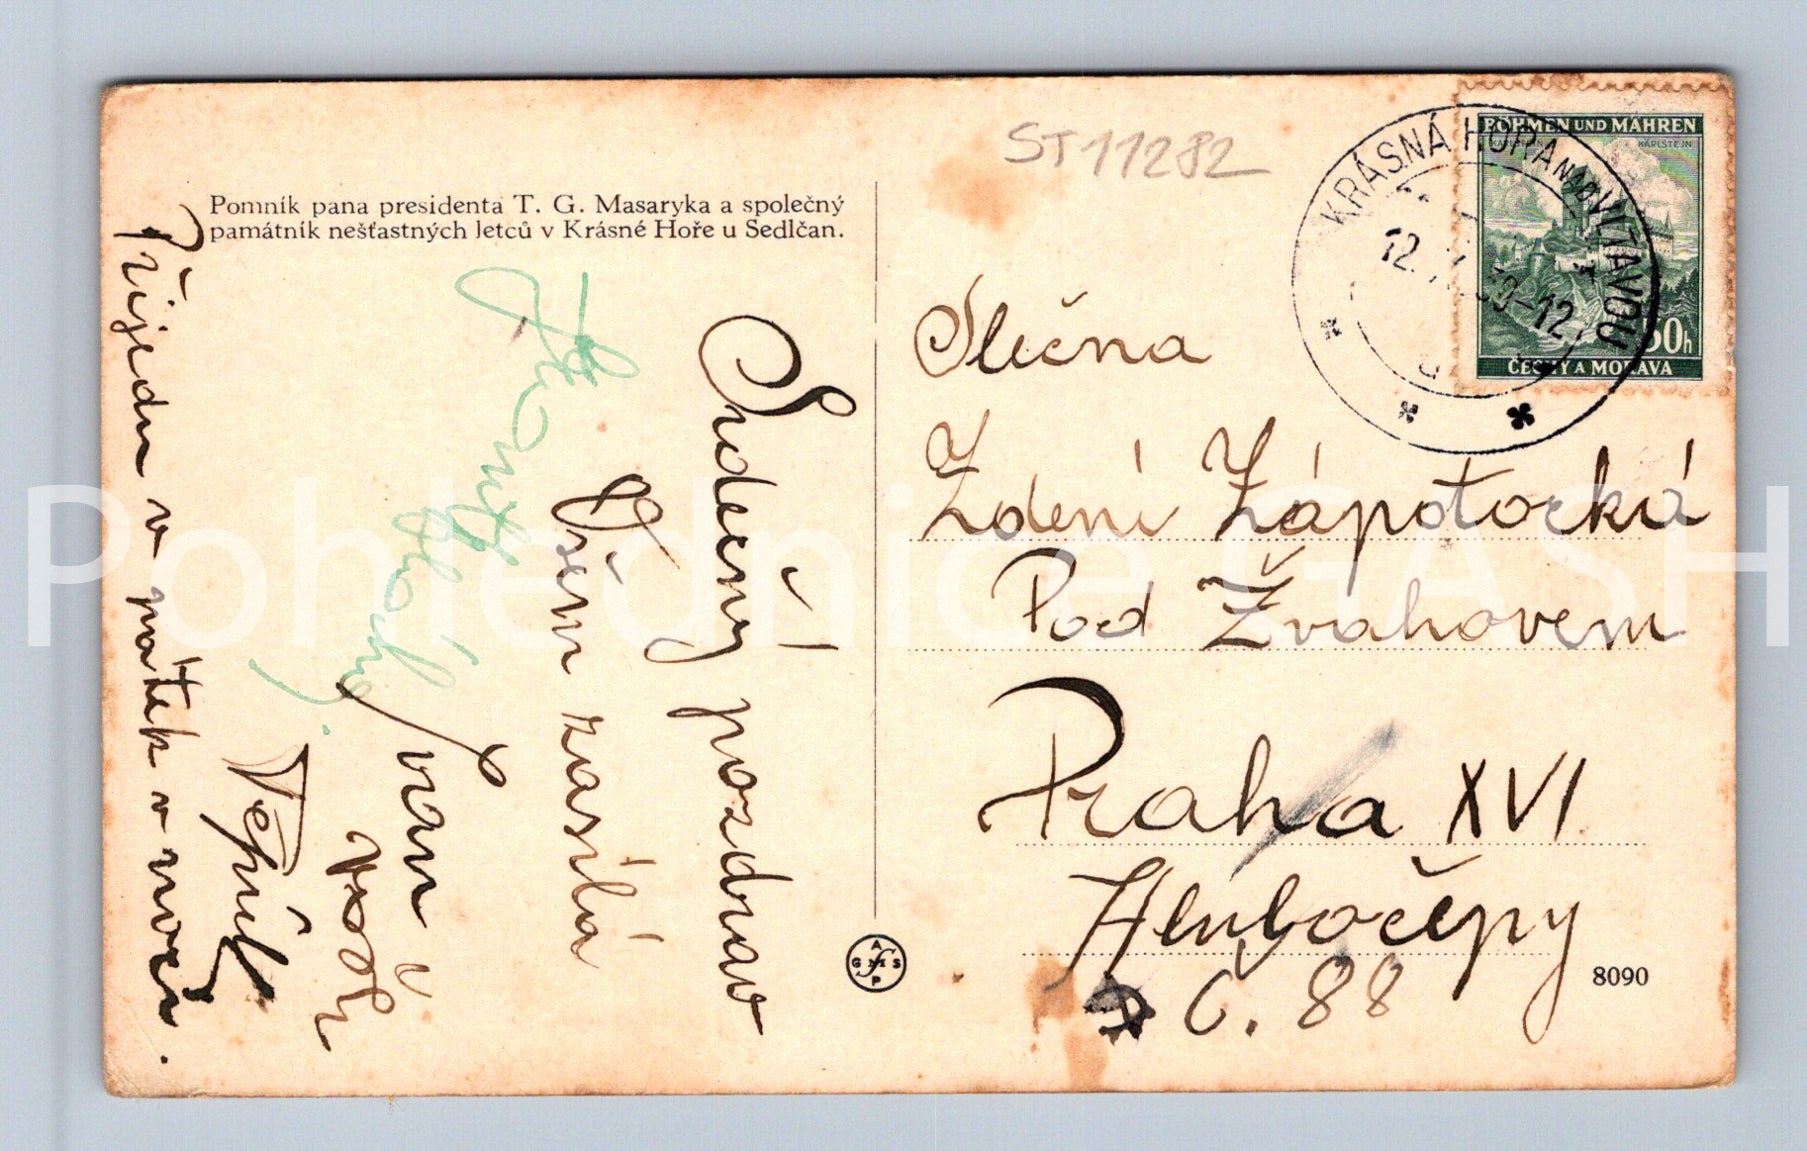 ST 11282
Pomník pana presidenta T. G. Masaryka a společný
památník nešťastných letců v Krásné Hoře u Sedlčan.
BÖHMEN UND MÄHREN
KARLSTEIN KARLŠTEJN
50h
ČECHY A MORAVA
KRÁSNÁ HORA NAD VLTAVOU
12. 39-12
Slečna
Zdeni Zápotocká
Pod Žvahovem
Praha XVI
Hlubočepy
č. 88
8090
Srdečný pozdrav
Všem zasílá
Váš
Přijedu v pátek v noci.
GRAFS
Pohlednice GASH